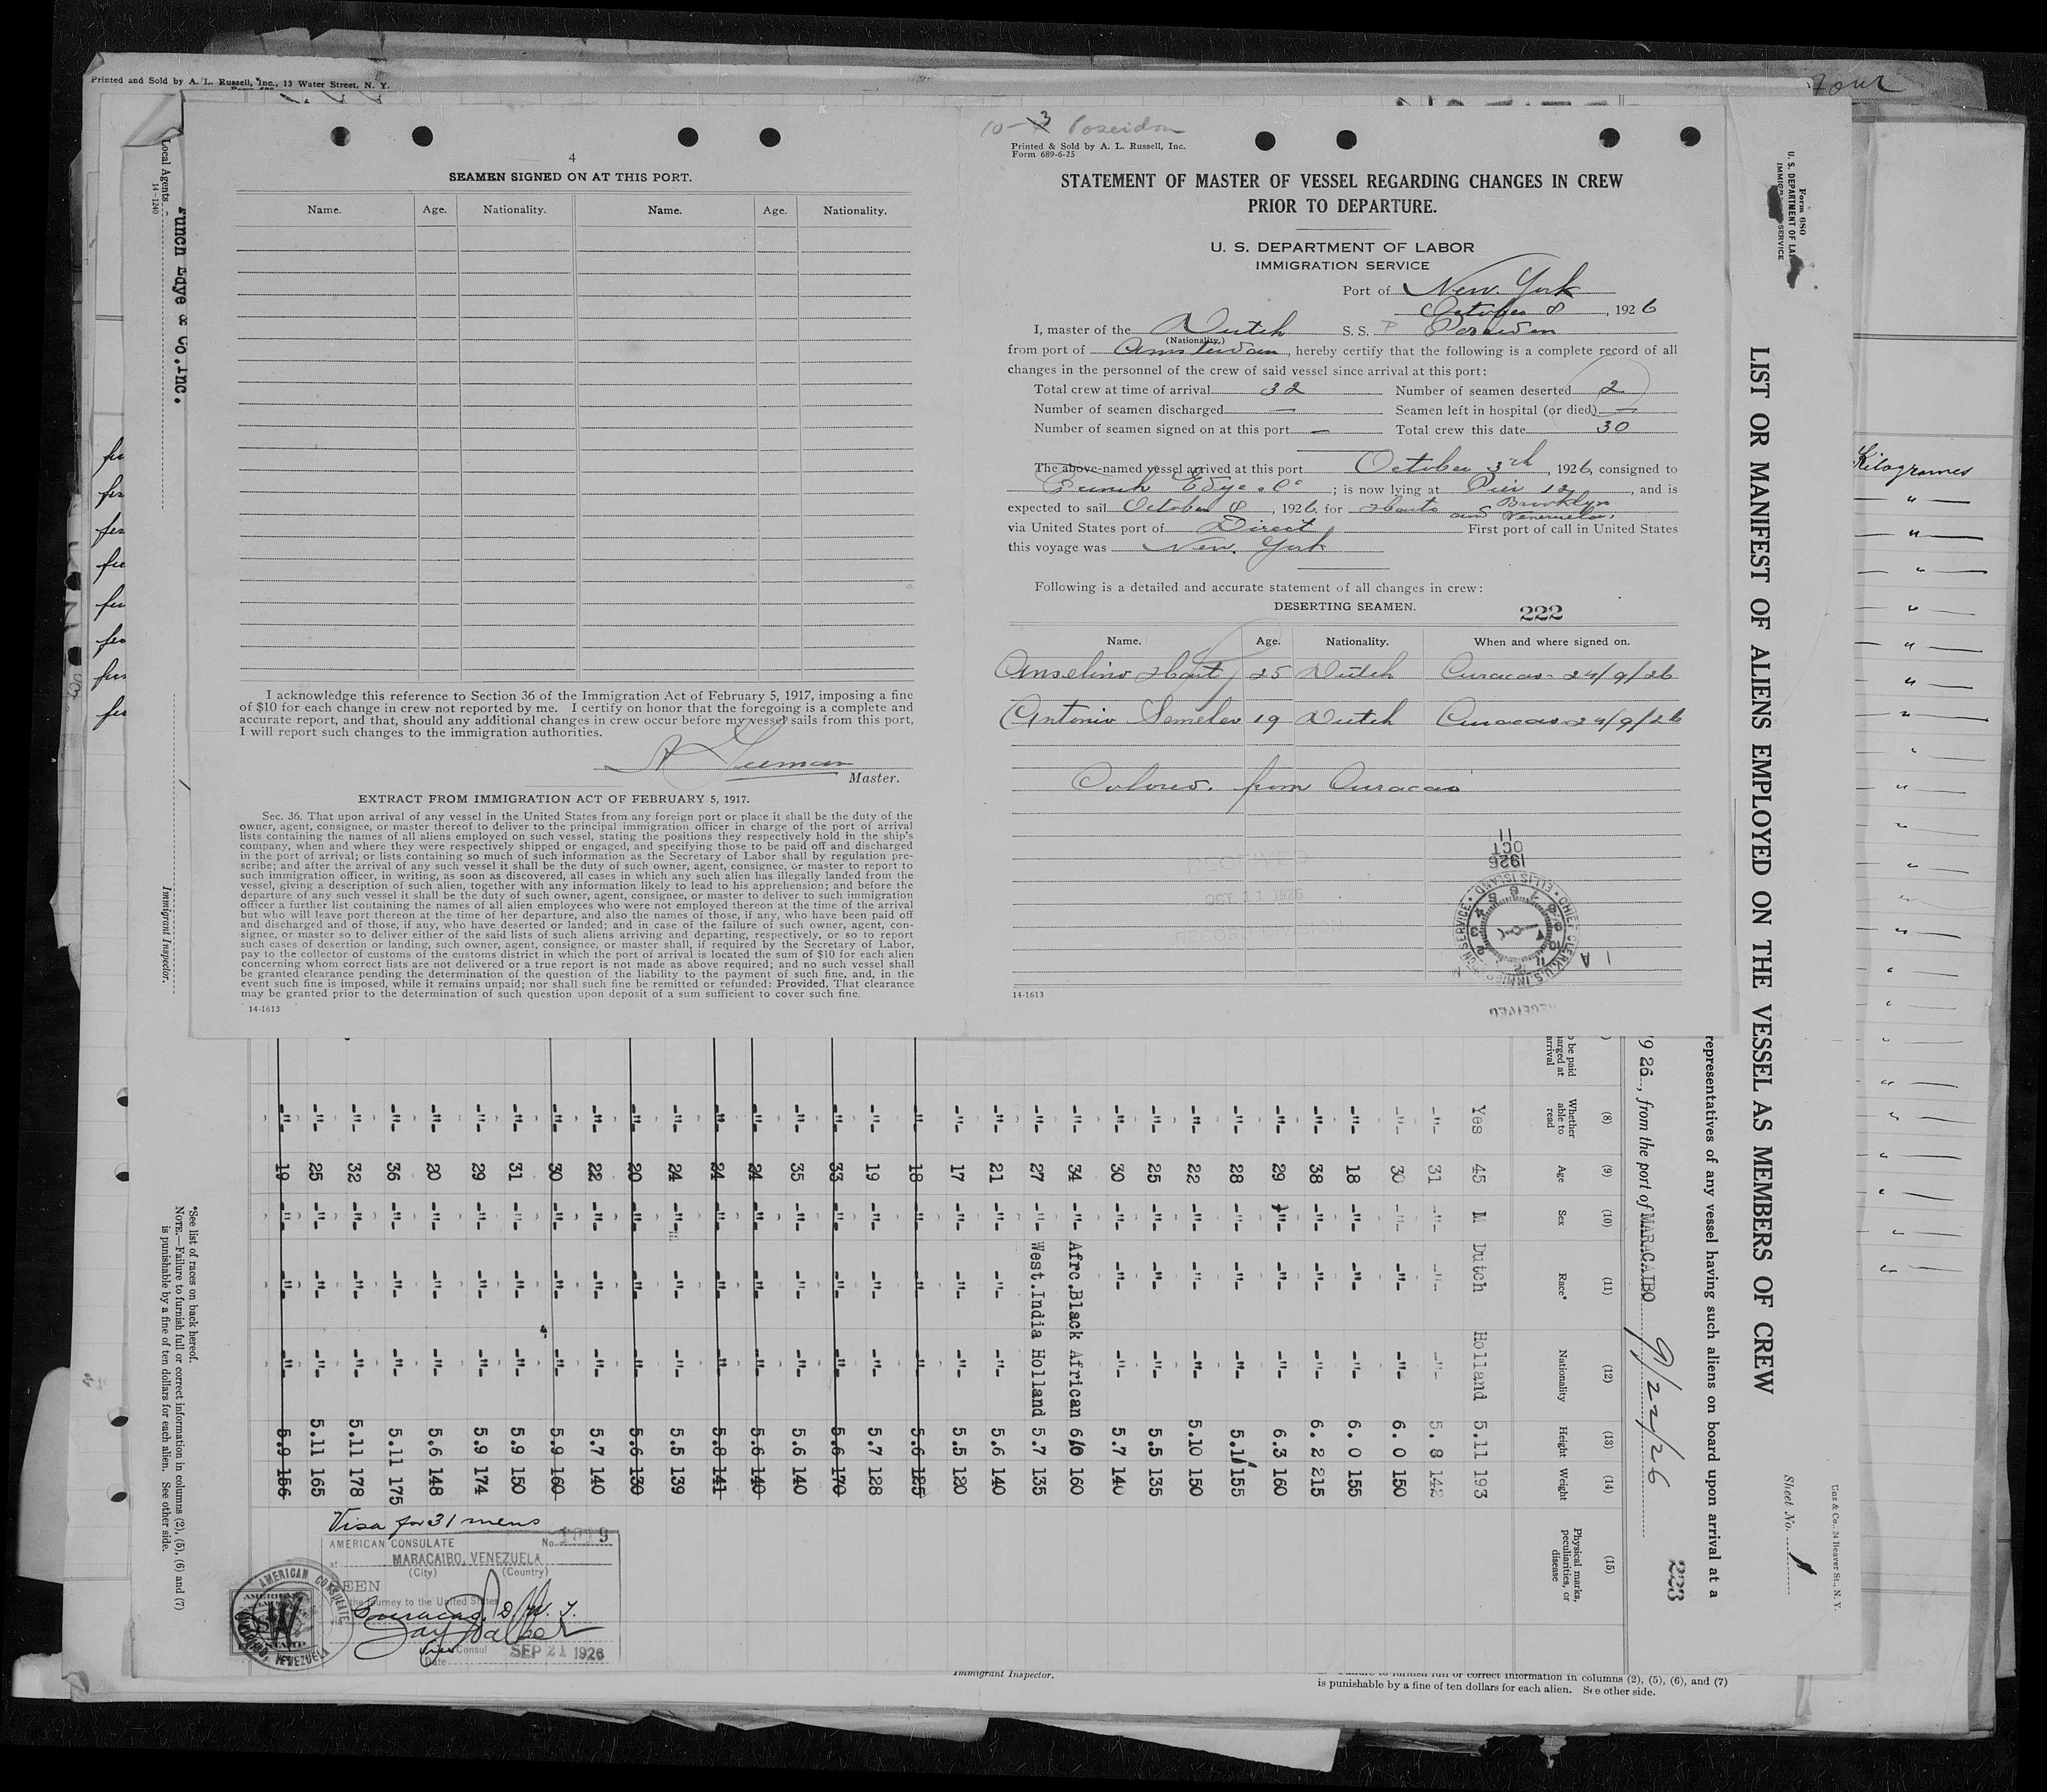 Printed and Sold by A. L. Russell, Inc., 13 Water Street, N. Y.
Four
4
SEAMEN SIGNED ON AT THIS PORT.
Name. Age. Nationality. Name. Age. Nationality.
I acknowledge this reference to Section 36 of the Immigration Act of February 5, 1917, imposing a fine
of $10 for each change in crew not reported by me. I certify on honor that the foregoing is a complete and
accurate report, and that, should any additional changes in crew occur before my vessel sails from this port,
I will report such changes to the immigration authorities.
Master.
EXTRACT FROM IMMIGRATION ACT OF FEBRUARY 5, 1917.
Sec. 36. That upon arrival of any vessel in the United States from any foreign port or place it shall be the duty of the
owner, agent, consignee, or master thereof to deliver to the principal immigration officer in charge of the port of arrival
lists containing the names of all aliens employed on such vessel, stating the positions they respectively hold in the ship's
company, when and where they were respectively shipped or engaged, and specifying those to be paid off and discharged
in the port of arrival; or lists containing so much of such information as the Secretary of Labor shall by regulation pre-
scribe; and after the arrival of any such vessel it shall be the duty of such owner, agent, consignee, or master to report to
such immigration officer, in writing, as soon as discovered, all cases in which any such alien has illegally landed from the
vessel, giving a description of such alien, together with any information likely to lead to his apprehension; and before the
departure of any such vessel it shall be the duty of such owner, agent, consignee, or master to deliver to such immigration
officer a further list containing the names of all alien employees who were not employed thereon at the time of the arrival
but who will leave port thereon at the time of her departure, and also the names of those, if any, who have been paid off
and discharged and of those, if any, who have deserted or landed; and in case of the failure of such owner, agent, con-
signee, or master so to deliver either of the said lists of such aliens arriving and departing, respectively, or so to report
such cases of desertion or landing, such owner, agent, consignee, or master shall, if required by the Secretary of Labor,
pay to the collector of customs of the customs district in which the port of arrival is located the sum of $10 for each alien
concerning whom correct lists are not delivered or a true report is not made as above required; and no such vessel shall
be granted clearance pending the determination of the question of the liability to the payment of such fine, and, in the
event such fine is imposed, while it remains unpaid; nor shall such fine be remitted or refunded: Provided, That clearance
may be granted prior to the determination of such question upon deposit of a sum sufficient to cover such fine.
14-1613
10-3 Poseidon
Printed & Sold by A. L. Russell, Inc.
Form 689-6-25
STATEMENT OF MASTER OF VESSEL REGARDING CHANGES IN CREW
PRIOR TO DEPARTURE.
U. S. DEPARTMENT OF LABOR
IMMIGRATION SERVICE
Port of New York
October 8, 1926
I, master of the Dutch S. S. Poseidon
(Nationality.)
from port of Amsterdam, hereby certify that the following is a complete record of all
changes in the personnel of the crew of said vessel since arrival at this port:
Total crew at time of arrival 32 Number of seamen deserted 2
Number of seamen discharged — Seamen left in hospital (or died) —
Number of seamen signed on at this port — Total crew this date 30
The above-named vessel arrived at this port October 3rd, 1926, consigned to
Funch Edye & Co; is now lying at Pier 12, and is
Brooklyn
expected to sail October 8, 1926, for Haiti and Venezuela,
via United States port of Direct First port of call in United States
this voyage was New York
Following is a detailed and accurate statement of all changes in crew:
DESERTING SEAMEN. 222
Name. Age. Nationality. When and where signed on.
Anselino Hart 25 Dutch Curacao 24/9/26
Antonio Semeler 19 Dutch Curacao 24/9/26
Colored. from Curacao
RECEIVED
OCT 11 1926
11
OCT
1926
CHIEF CLERK, U.S. IMMIGRATION SERVICE • ELLIS ISLAND •
RECEIVED
14-1613
Kilogrames
Form 680
U. S. DEPARTMENT OF LA
IMMIG SERVICE
LIST OR MANIFEST OF ALIENS EMPLOYED ON THE VESSEL AS MEMBERS OF CREW
Unz & Co., 24 Beaver St., N. Y.
Sheet No. 1
representatives of any vessel having such aliens on board upon arrival at a
223
1926, from the port of MARACAIBO 9/22/26
be paid
arged at
arrival
(8) (9) (10) (11) (12) (13) (14) (15)
Whether able to read Age Sex Race* Nationality Height Weight Physical marks, peculiarities, or disease
Yes 45 M Dutch Holland 5.11 193
-"- 31 -"- -"- -"- 5.8 142
-"- 30 -"- -"- -"- 6.0 150
-"- 18 -"- -"- -"- 6.0 155
-"- 38 -"- -"- -"- 6.2 215
-"- 29 -"- -"- -"- 6.3 160
-"- 28 -"- -"- -"- 5.11 155
-"- 22 -"- -"- -"- 5.10 150
-"- 25 -"- -"- -"- 5.5 135
-"- 30 -"- -"- -"- 5.7 140
-"- 34 -"- Afrc.Black African 6/0 160
-"- 27 -"- West.India Holland 5.7 135
-"- 21 -"- -"- -"- 5.6 140
-"- 17 -"- -"- -"- 5.5 120
-"- 18 -"- -"- -"- 5.6 125
-"- 19 -"- -"- -"- 5.7 128
-"- 33 -"- -"- -"- 5.6 170
-"- 35 -"- -"- -"- 5.6 140
-"- 24 -"- -"- -"- 5.6 140
-"- 24 -"- -"- -"- 5.8 141
-"- 24 -"- -"- -"- 5.5 139
-"- 20 -"- -"- -"- 5.6 130
-"- 22 -"- -"- -"- 5.7 140
-"- 30 -"- -"- -"- 5.9 160
-"- 31 -"- -"- -"- 5.9 150
-"- 29 -"- -"- -"- 5.9 174
-"- 20 -"- -"- -"- 5.6 148
-"- 36 -"- -"- -"- 5.11 175
-"- 32 -"- -"- -"- 5.11 178
-"- 25 -"- -"- -"- 5.11 165
-"- 19 -"- -"- -"- 5.9 156
*See list of races on back hereof.
NOTE.—Failure to furnish full or correct information in columns (2), (5), (6) and (7)
is punishable by a fine of ten dollars for each alien. See other side.
Immigrant Inspector.
Local Agents
14-1240
Funch Edye & Co.Inc.
Visa for 31 mens
AMERICAN CONSULATE No.
at MARACAIBO, VENEZUELA
(City) (Country)
SEEN
the journey to the United States
via Curacao, D.W.I.
Vice Consul
Date SEP 21 1926
AMERICAN CONSULATE
MARACAIBO, VENEZUELA
Immigrant Inspector.
to furnish full or correct information in columns (2), (5), (6), and (7)
is punishable by a fine of ten dollars for each alien. See other side.